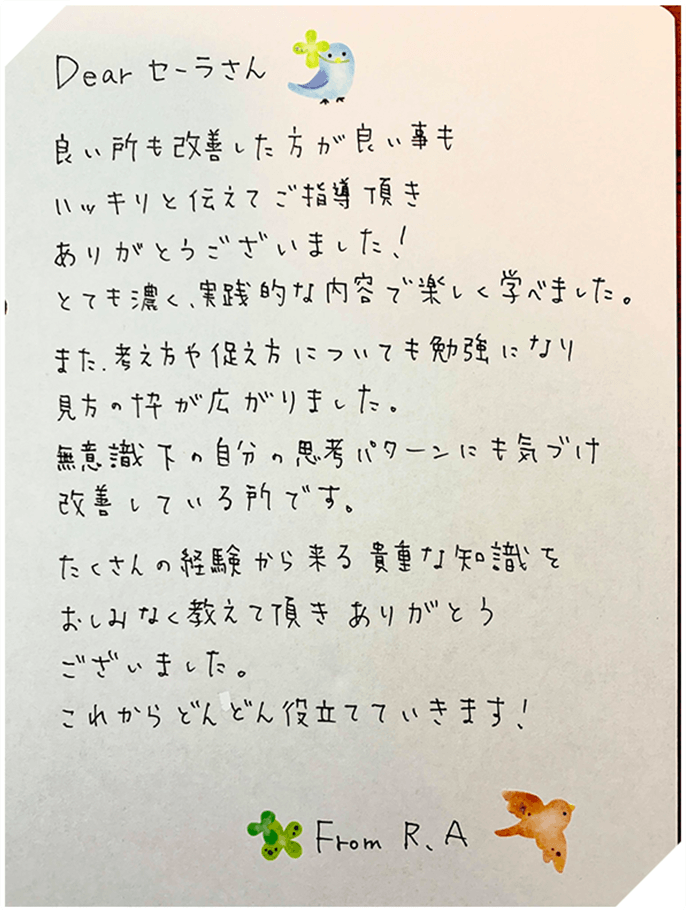 Dear セーラさん
良い所も改善した方が良い事も
ハッキリと伝えてご指導頂き
ありがとうございました!
とても濃く、実践的な内容で楽しく学べました。
また、考え方や促え方についても勉強になり
見方の枠が広がりました。
無意識下の自分の思考パターンにも気づけ
改善している所です。
たくさんの経験から来る貴重な知識を
おしみなく教えて頂きありがとう
ございました。
これからどんどん役立てていきます!
From R、A